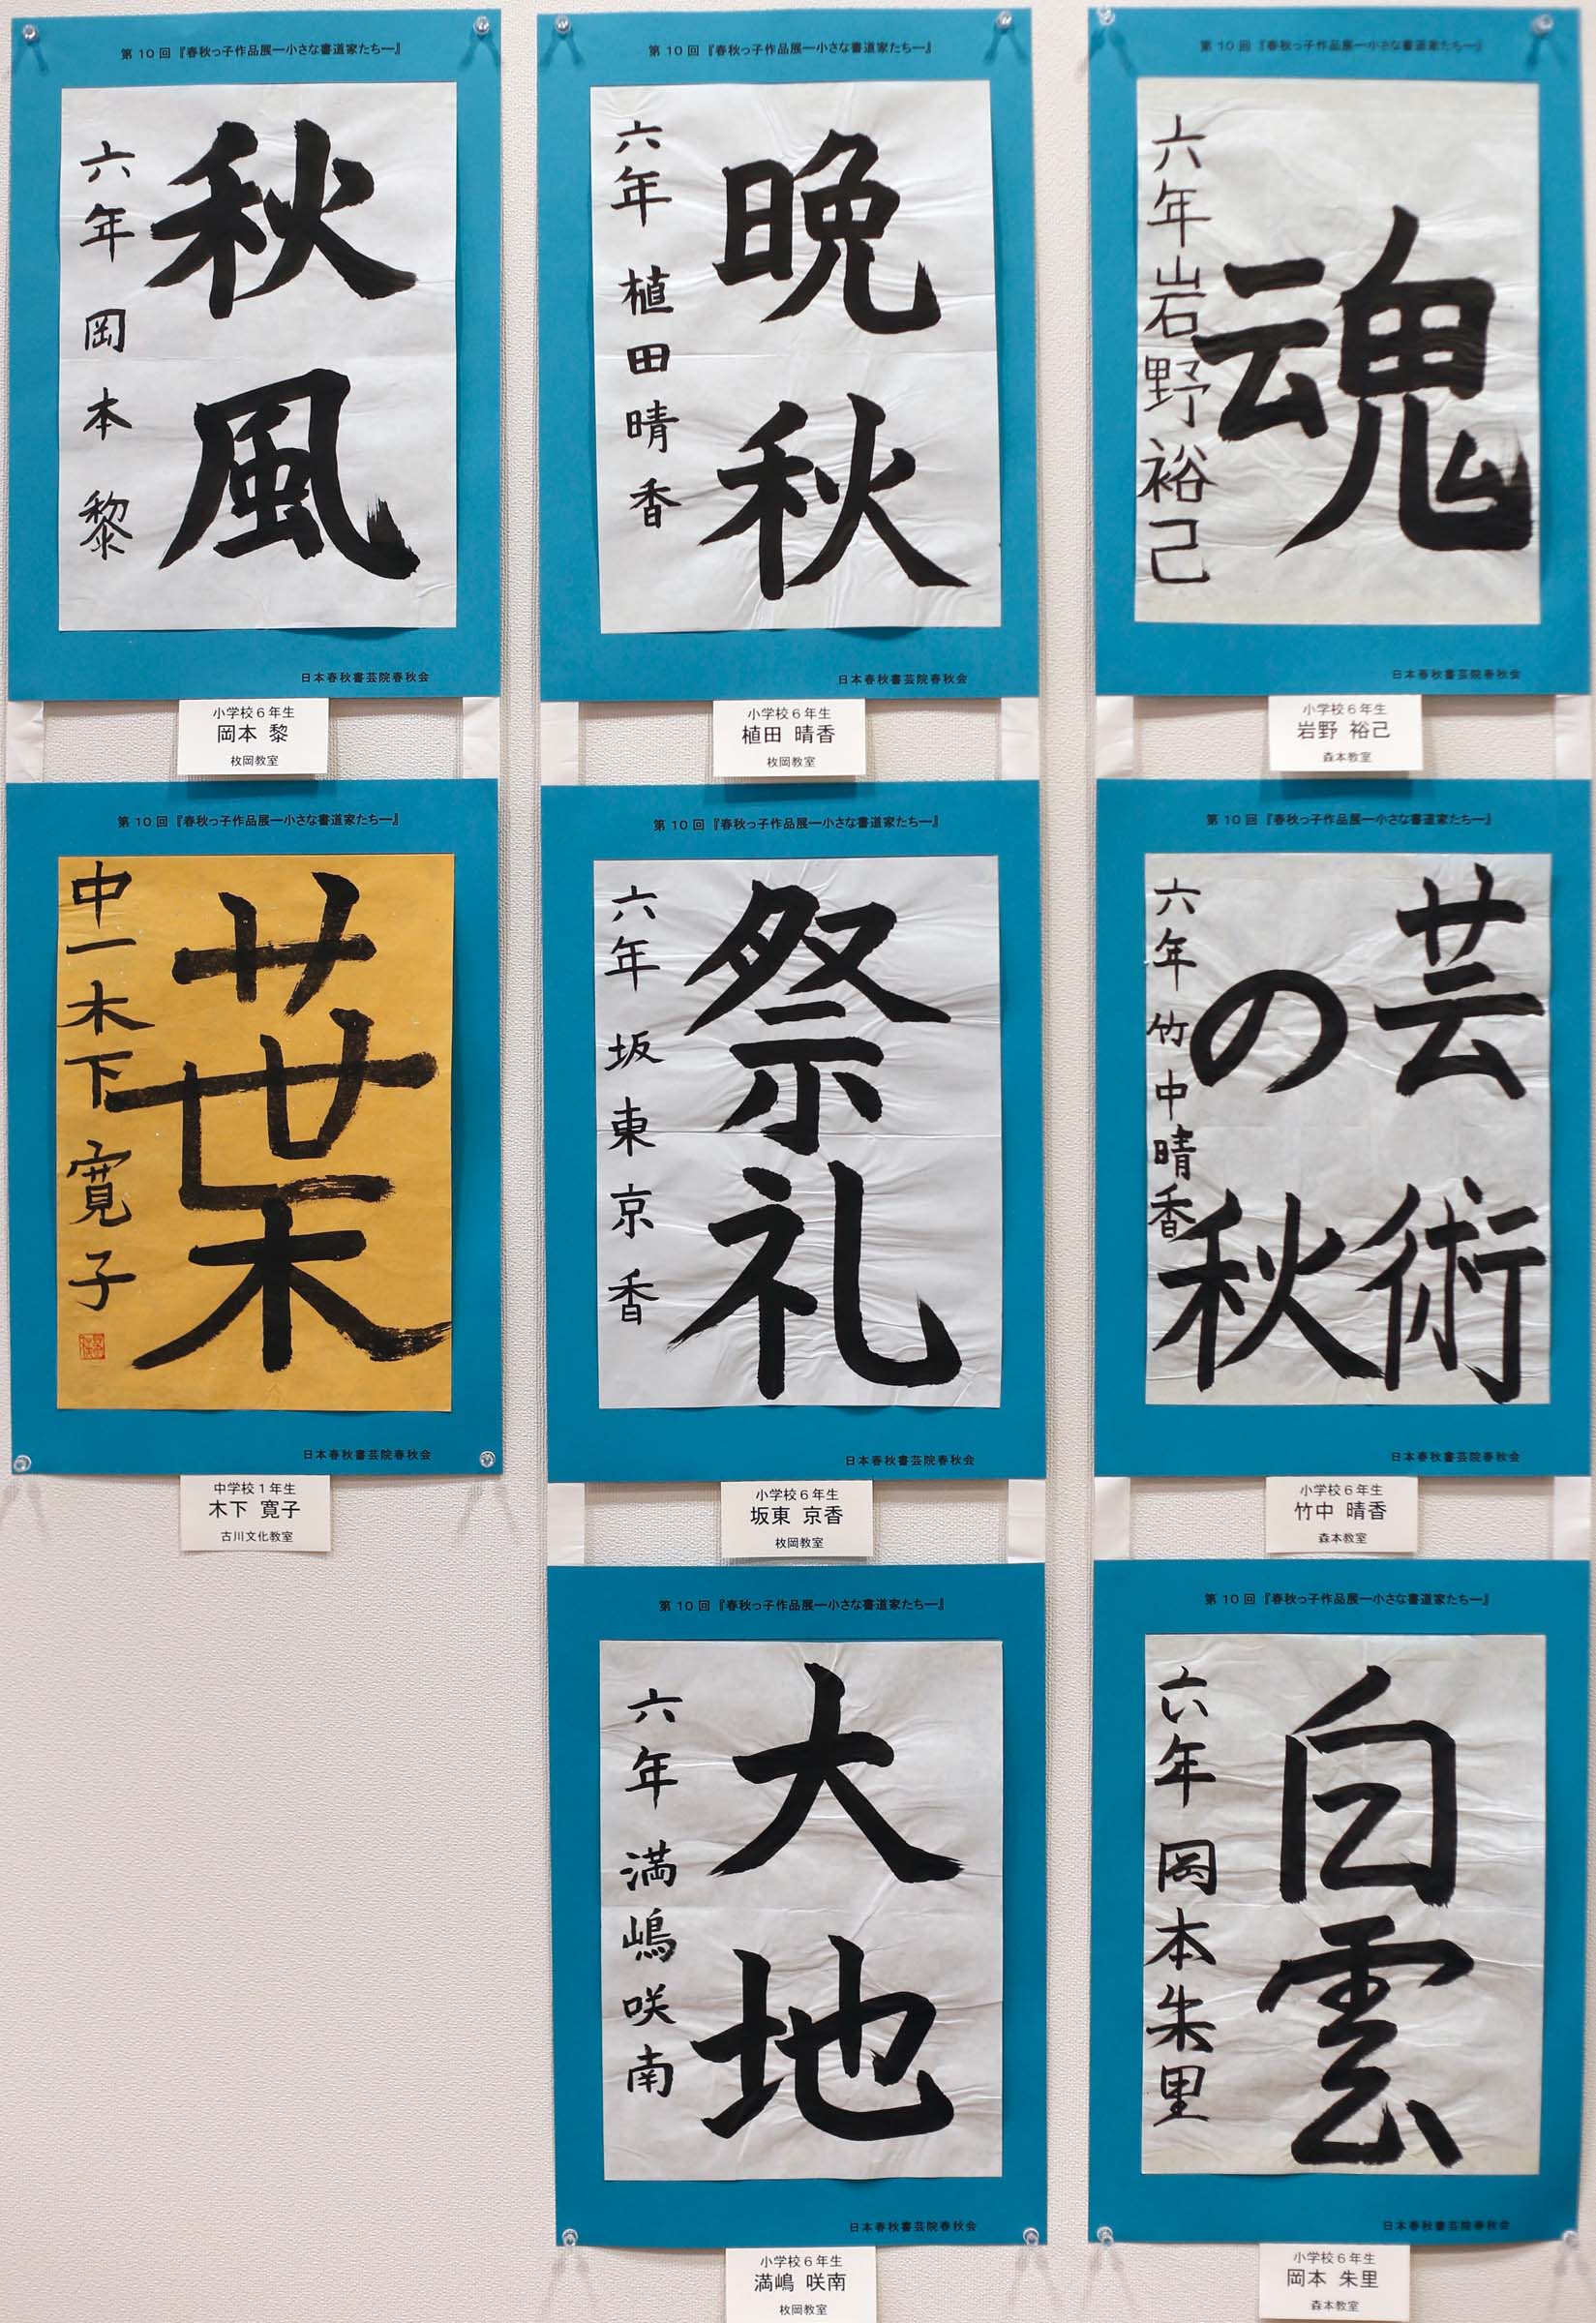 第10回『春秋っ子作品展―小さな書道家たち―』
秋風
六年 岡本 黎
日本春秋書芸院春秋会
小学校6年生
岡本 黎
枚岡教室
第10回『春秋っ子作品展―小さな書道家たち―』
晩秋
六年 植田晴香
日本春秋書芸院春秋会
小学校6年生
植田 晴香
枚岡教室
第10回『春秋っ子作品展―小さな書道家たち―』
魂
六年岩野裕己
日本春秋書芸院春秋会
小学校6年生
岩野 裕己
森本教室
第10回『春秋っ子作品展―小さな書道家たち―』
葉
中一木下寛子
日本春秋書芸院春秋会
中学校1年生
木下 寛子
古川文化教室
第10回『春秋っ子作品展―小さな書道家たち―』
祭礼
六年 坂東京香
日本春秋書芸院春秋会
小学校6年生
坂東 京香
枚岡教室
第10回『春秋っ子作品展―小さな書道家たち―』
芸術
の秋
六年竹中晴香
日本春秋書芸院春秋会
小学校6年生
竹中 晴香
森本教室
第10回『春秋っ子作品展―小さな書道家たち―』
大地
六年 満嶋咲南
日本春秋書芸院春秋会
小学校6年生
満嶋 咲南
枚岡教室
第10回『春秋っ子作品展―小さな書道家たち―』
白雲
六年 岡本朱里
日本春秋書芸院春秋会
小学校6年生
岡本 朱里
森本教室